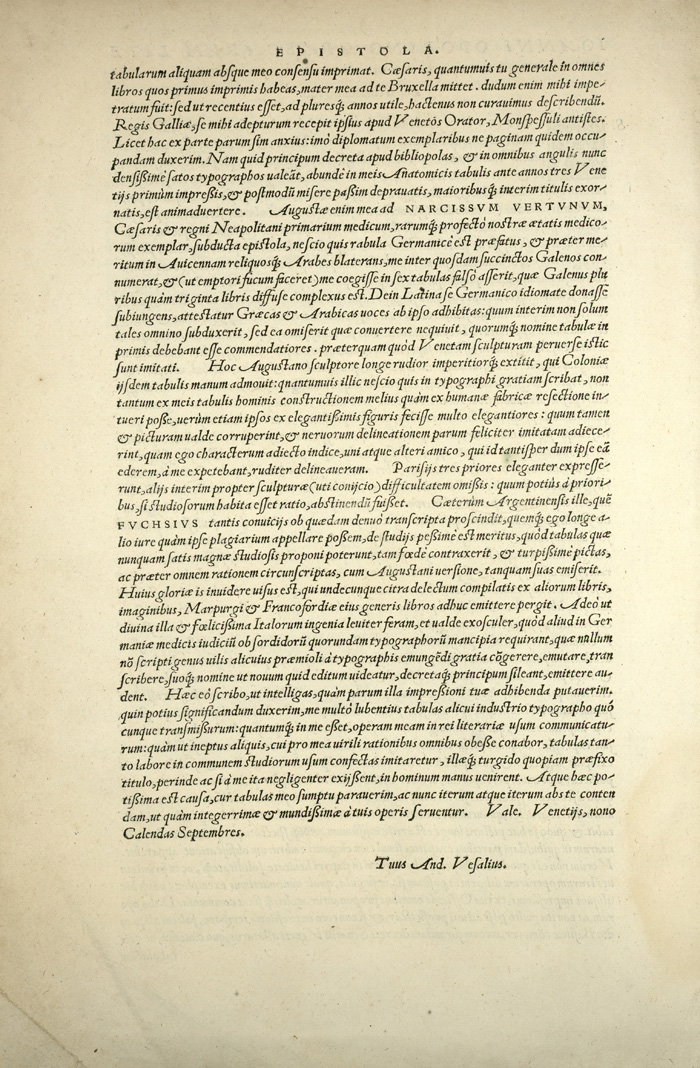 EPISTOLA.
tabularum aliquam absque meo consensu imprimat. Cæsaris, quantumuis tu generale in omnes
libros quos primus imprimis habeas, mater mea ad te Bruxella mittet. dudum enim mihi impe⸗
tratum fuit: sed ut recentius esset, ad pluresq; annos utile, hactenus non curauimus describendū.
Regis Galliæ, se mihi adepturum recepit ipsius apud Venetôs Orator, Monspessuli antistes.
Licet hac ex parte parum sim anxius: imò diplomatum exemplaribus ne paginam quidem occu⸗
pandam duxerim. Nam quid principum decreta apud bibliopolas, & in omnibus angulis nunc
densißimè satos typographos ualeãt, abundè in meis Anatomicis tabulis ante annos tres Vene
tijs primùm impreßis, & postmodū miserè paßim deprauatis, maioribusq; interim titulis exor⸗
natis, est animaduertere. Augustæ enim mea ad NARCISSVM VERTVNVM,
Cæsaris & regni Neapolitani primarium medicum, rarumq; profectò nostræ ætatis medico⸗
rum exemplar, subducta epistola, nescio quis rabula Germanicè est præfatus, & præter me⸗
ritum in Auicennam reliquosq; Arabes blaterans, me inter quosdam succinctos Galenos con⸗
numerat, & (ut emptori fucum faceret) me coegisse in sex tabulas falsò asserit, quæ Galenus plu
ribus quàm triginta libris diffusè complexus est. Dein Latina se Germanico idiomate donasse
subiungens, attestatur Græcas & Arabicas uoces ab ipso adhibitas: quum interim non solum
tales omnino subduxerit, sed ea omiserit quæ conuertere nequiuit, quorumq; nomine tabulæ in
primis debebant esse commendatiores. præterquam quòd Venetam sculpturam peruersè istic
sunt imitati. Hoc Augustano sculptore longe rudior imperitiorq; extitit, qui Coloniæ
ijsdem tabulis manum admouit: quantumuis illic nescio quis in typographi gratiam scribat, non
tantum ex meis tabulis hominis constructionem melius quàm ex humanæ fabricæ resectione in⸗
tueri posse, uerùm etiam ipsos ex elegantißimis figuris fecisse multo elegantiores: quum tamen
& picturam ualde corruperint, & neruorum delineationem parum feliciter imitatam adiece⸗
rint, quam ego characterum adiecto indice, uni atque alteri amico, qui id tantisper dum ipse eã
ederem, à me expetebant, ruditer delineaueram. Parisijs tres priores eleganter expresse⸗
runt, alijs interim propter sculpturæ (uti conijcio) difficultatem omißis: quum potiùs à priori⸗
bus, si studiosorum habita esset ratio, abstinendū fuisset. Cæterùm Argentinensis ille, quē
FVCHSIVS tantis conuicijs ob quædam denuò transcripta proscindit, quemq; ego longe a⸗
lio iure quàm ipse plagiarium appellare possem, de studijs peßimè est meritus, quòd tabulas quæ
nunquam satis magnæ studiosis proponi poterunt, tam fœdè contraxerit, & turpißimè pictas,
ac præter omnem rationem circunscriptas, cum Augustani uersione, tanquam suas emiserit.
Huius gloriæ is inuidere uisus est, qui undecunque citra delectum compilatis ex aliorum libris,
imaginibus, Marpurgi & Francofordiæ eius generis libros adhuc emittere pergit. Adeò ut
diuina illa & fœlicißima Italorum ingenia leuiter feram, et ualde exosculer, quòd aliud in Ger
maniæ medicis iudiciū ob sordidorū quorundam typographorū mancipia requirant, quæ nullum
nō scripti genus uilis alicuius præmioli à typographis emungēdi gratia cōgerere, emutare, tran
scribere, suoq; nomine ut nouum quid editum uideatur, decretaq; principum sileant, emittere au⸗
dent. Hæc eò scribo, ut intelligas, quàm parum illa impreßioni tuæ adhibenda putauerim.
quin potius significandum duxerim, me multò lubentius tabulas alicui industrio typographo quò
cunque transmissurum: quantumq; in me esset, operam meam in rei literariæ usum communicatu⸗
rum: quàm ut ineptus aliquis, cui pro mea uirili rationibus omnibus obesse conabor, tabulas tan⸗
to labore in communem studiorum usum confectas imitaretur, illæq; turgido quopiam præfixo
titulo, perinde ac si à me ita negligenter exijssent, in hominum manus uenirent. Atque hæc po⸗
tißima est causa, cur tabulas meo sumptu parauerim, ac nunc iterum atque iterum abs te conten
dam, ut quàm integerrimæ & mundißimæ à tuis operis seruentur. Vale. Venetijs, nono
Calendas Septembres.
Tuus And. Vesalius.